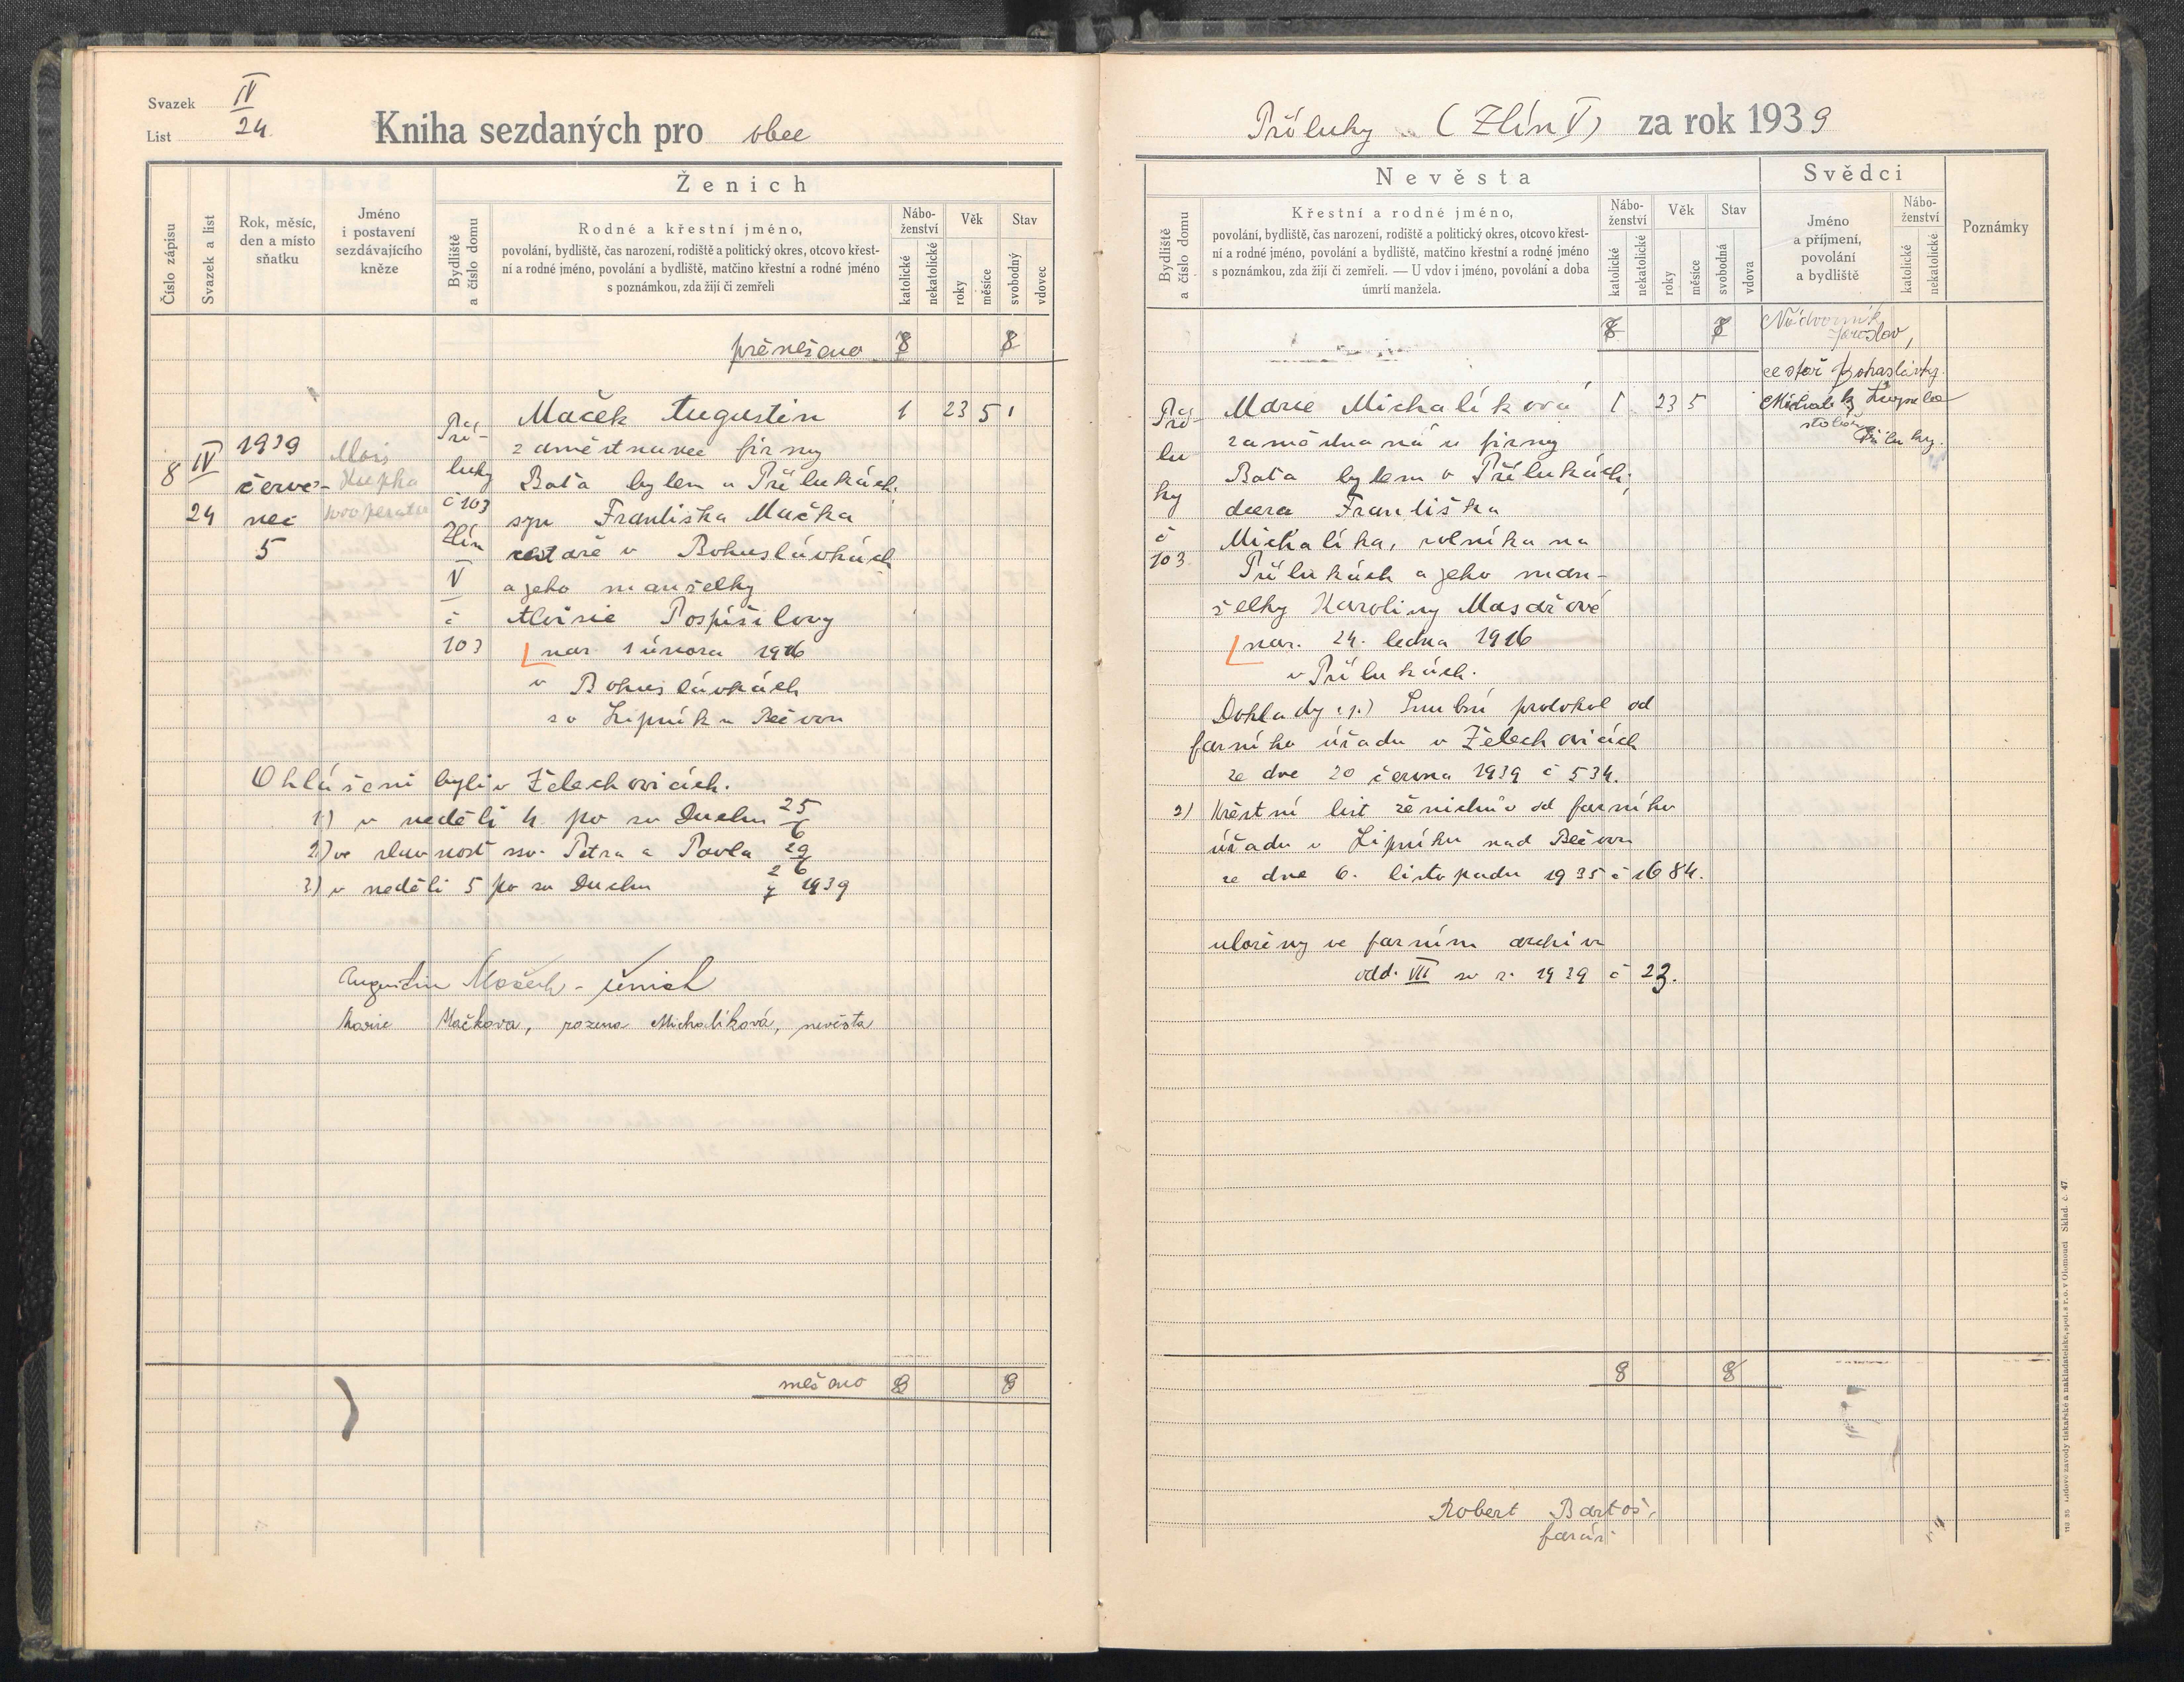 Svazek IV
List 24
Kniha sezdaných pro obec
Číslo zápisu
Svazek a list
Rok, měsíc,
den a místo
sňatku
Jméno
i postavení
sezdávajícího
kněze
Ženich
Bydliště
a číslo domu
Rodné a křestní jméno,
povolání, bydliště, čas narození, rodiště a politický okres, otcovo křest-
ní a rodné jméno, povolání a bydliště, matčino křestní a rodné jméno
s poznámkou, zda žijí či zemřeli
Nábo-
ženství
katolické
nekatolické
Věk
roky
měsíce
Stav
svobodný
vdovec
přenešeno 8 8
8
IV
24
1939
červe-
nec
5
Alois
Pří-
luky
č 103
Zlín
V
č
103
Maček Augustin 1 23 5 1
zaměstnanec firmy
Baťa bylem v Přílukách,
syn Františka Mačka
cestáře v Bohuslávkách
a jeho manželky
Aloisie Pospíšilovy
nar 1 února 1916
v Bohuslávkách
so Lipník n Bečvou
Ohlášeni byli v Želechovicích.
1) v neděli 4. po sv Duchu 25/6
2) ve slavnost ssv. Petra a Pavla 29/6
3) v neděli 5 po sv Duchu 2/7 1939
Augustin Maček - ženich
Marie Mačkova, rozena Michalíková, nevěsta
nešeno 8 8
Příluky (Zlín V) za rok 1939
Nevěsta
Bydliště
a číslo domu
Křestní a rodné jméno,
povolání, bydliště, čas narození, rodiště a politický okres, otcovo křest-
ní a rodné jméno, povolání a bydliště, matčino křestní a rodné jméno
s poznámkou, zda žijí či zemřeli. — U vdov i jméno, povolání a doba
úmrtí manžela.
Nábo-
ženství
katolické
nekatolické
Věk
roky
měsíce
Stav
svobodná
vdova
Svědci
Jméno
a příjmení,
povolání
a bydliště
Nábo-
ženství
katolické
nekatolické
Poznámky
8 8
Pří-
lu
ky
č
103
Marie Michalíková 1 23 5
zaměstnaná u firmy
Baťa bylem v Přílukách,
dcera Františka
Michalíka, rolníka na
Přílukách a jeho man-
želky Karoliny Masařové
nar. 24. ledna 1916
v Přílukách.
Doklady: 1.) Snubní protokol od
farního úřadu v Želechovicích
ze dne 20 června 1939 č 534.
2) Křestní list ženichův od farního
úřadu v Lipníku nad Bečvou
ze dne 6. listopadu 1935 č 1684.
uloženy ve farním archivu
odd. VII sv r. 1939 č 23.
Nádvorník
Jaroslav,
cestář
Michalík
stolař
Příluky.
8 8
Robert Bartoš,
farář
113 35 Lidové závody tiskařské a nakladatelské, spol. s r. o. v Olomouci Sklad. č. 47